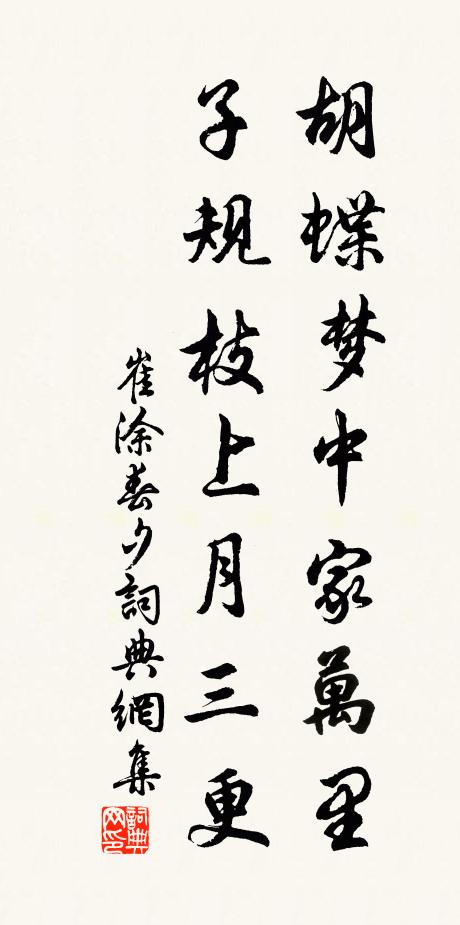 胡蝶梦中家萬里
子規枝上月三更
崔涂春夕詞典網集
詞典网印